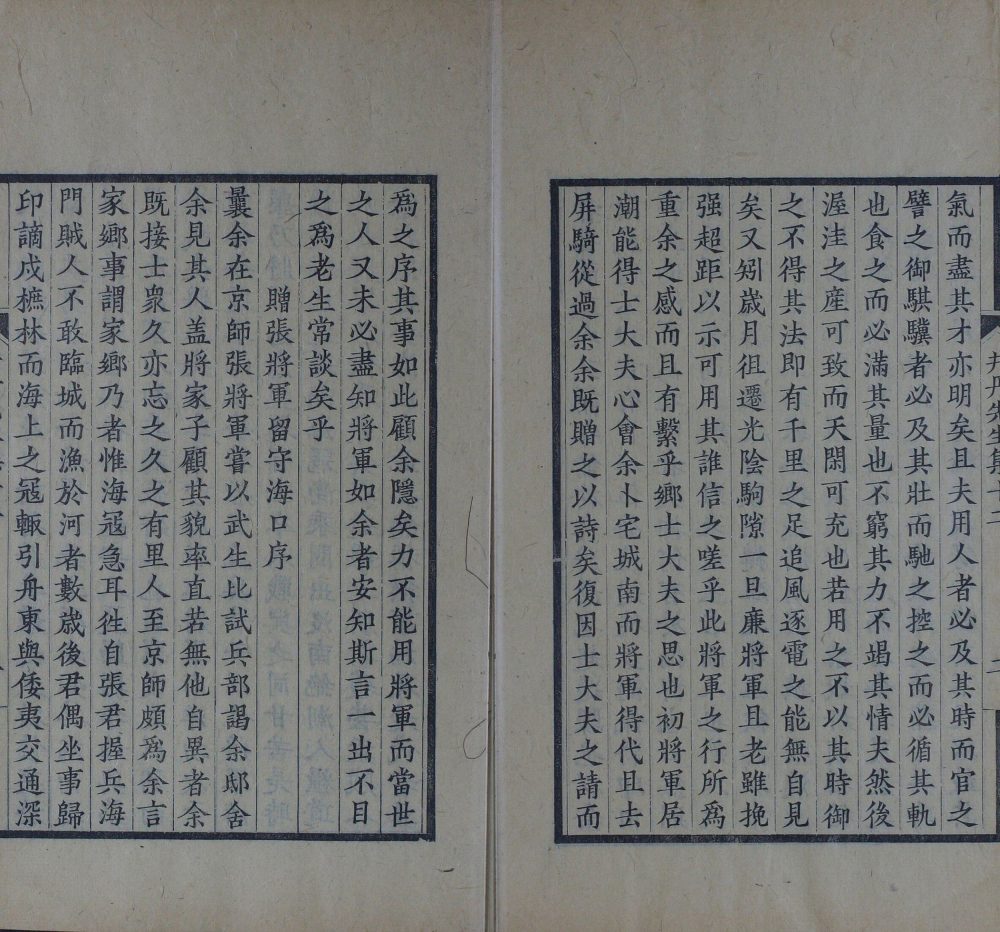 井丹先生集十二
氣而盡其才亦明矣且夫用人者必及其時而官之
譬之御騏驥者必及其壯而馳之控之而必循其軌
也食之而必滿其量也不窮其力不竭其情夫然後
渥洼之産可致而天閑可充也若用之不以其時御
之不得其法即有千里之足追風逐電之能無自見
矣又矧歲月徂遷光陰駒隙一旦廉將軍且老雖挽
强超距以示可用其誰信之嗟乎此將軍之行所爲
重余之感而且有繫乎鄉士大夫之思也初將軍居
潮能得士大夫心會余卜宅城南而將軍得代且去
屏騎從過余余既贈之以詩矣復因士大夫之請而
爲之序其事如此顧余隱矣力不能用將軍而當世
之人又未必盡知將軍如余者安知斯言一出不目
之爲老生常談矣乎
贈張將軍留守海口序
曩余在京師張將軍嘗以武生比試兵部謁余邸舍
余見其人盖將家子顧其貌率直若無他自異者余
既接士衆久亦忘之久之有里人至京師頗爲余言
家鄉事謂家鄉乃者惟海冦急耳徃自張君握兵海
門賊人不敢臨城而漁於河者數歲後君偶坐事歸
印謫戍樜林而海上之冦輙引舟東與倭夷交通深